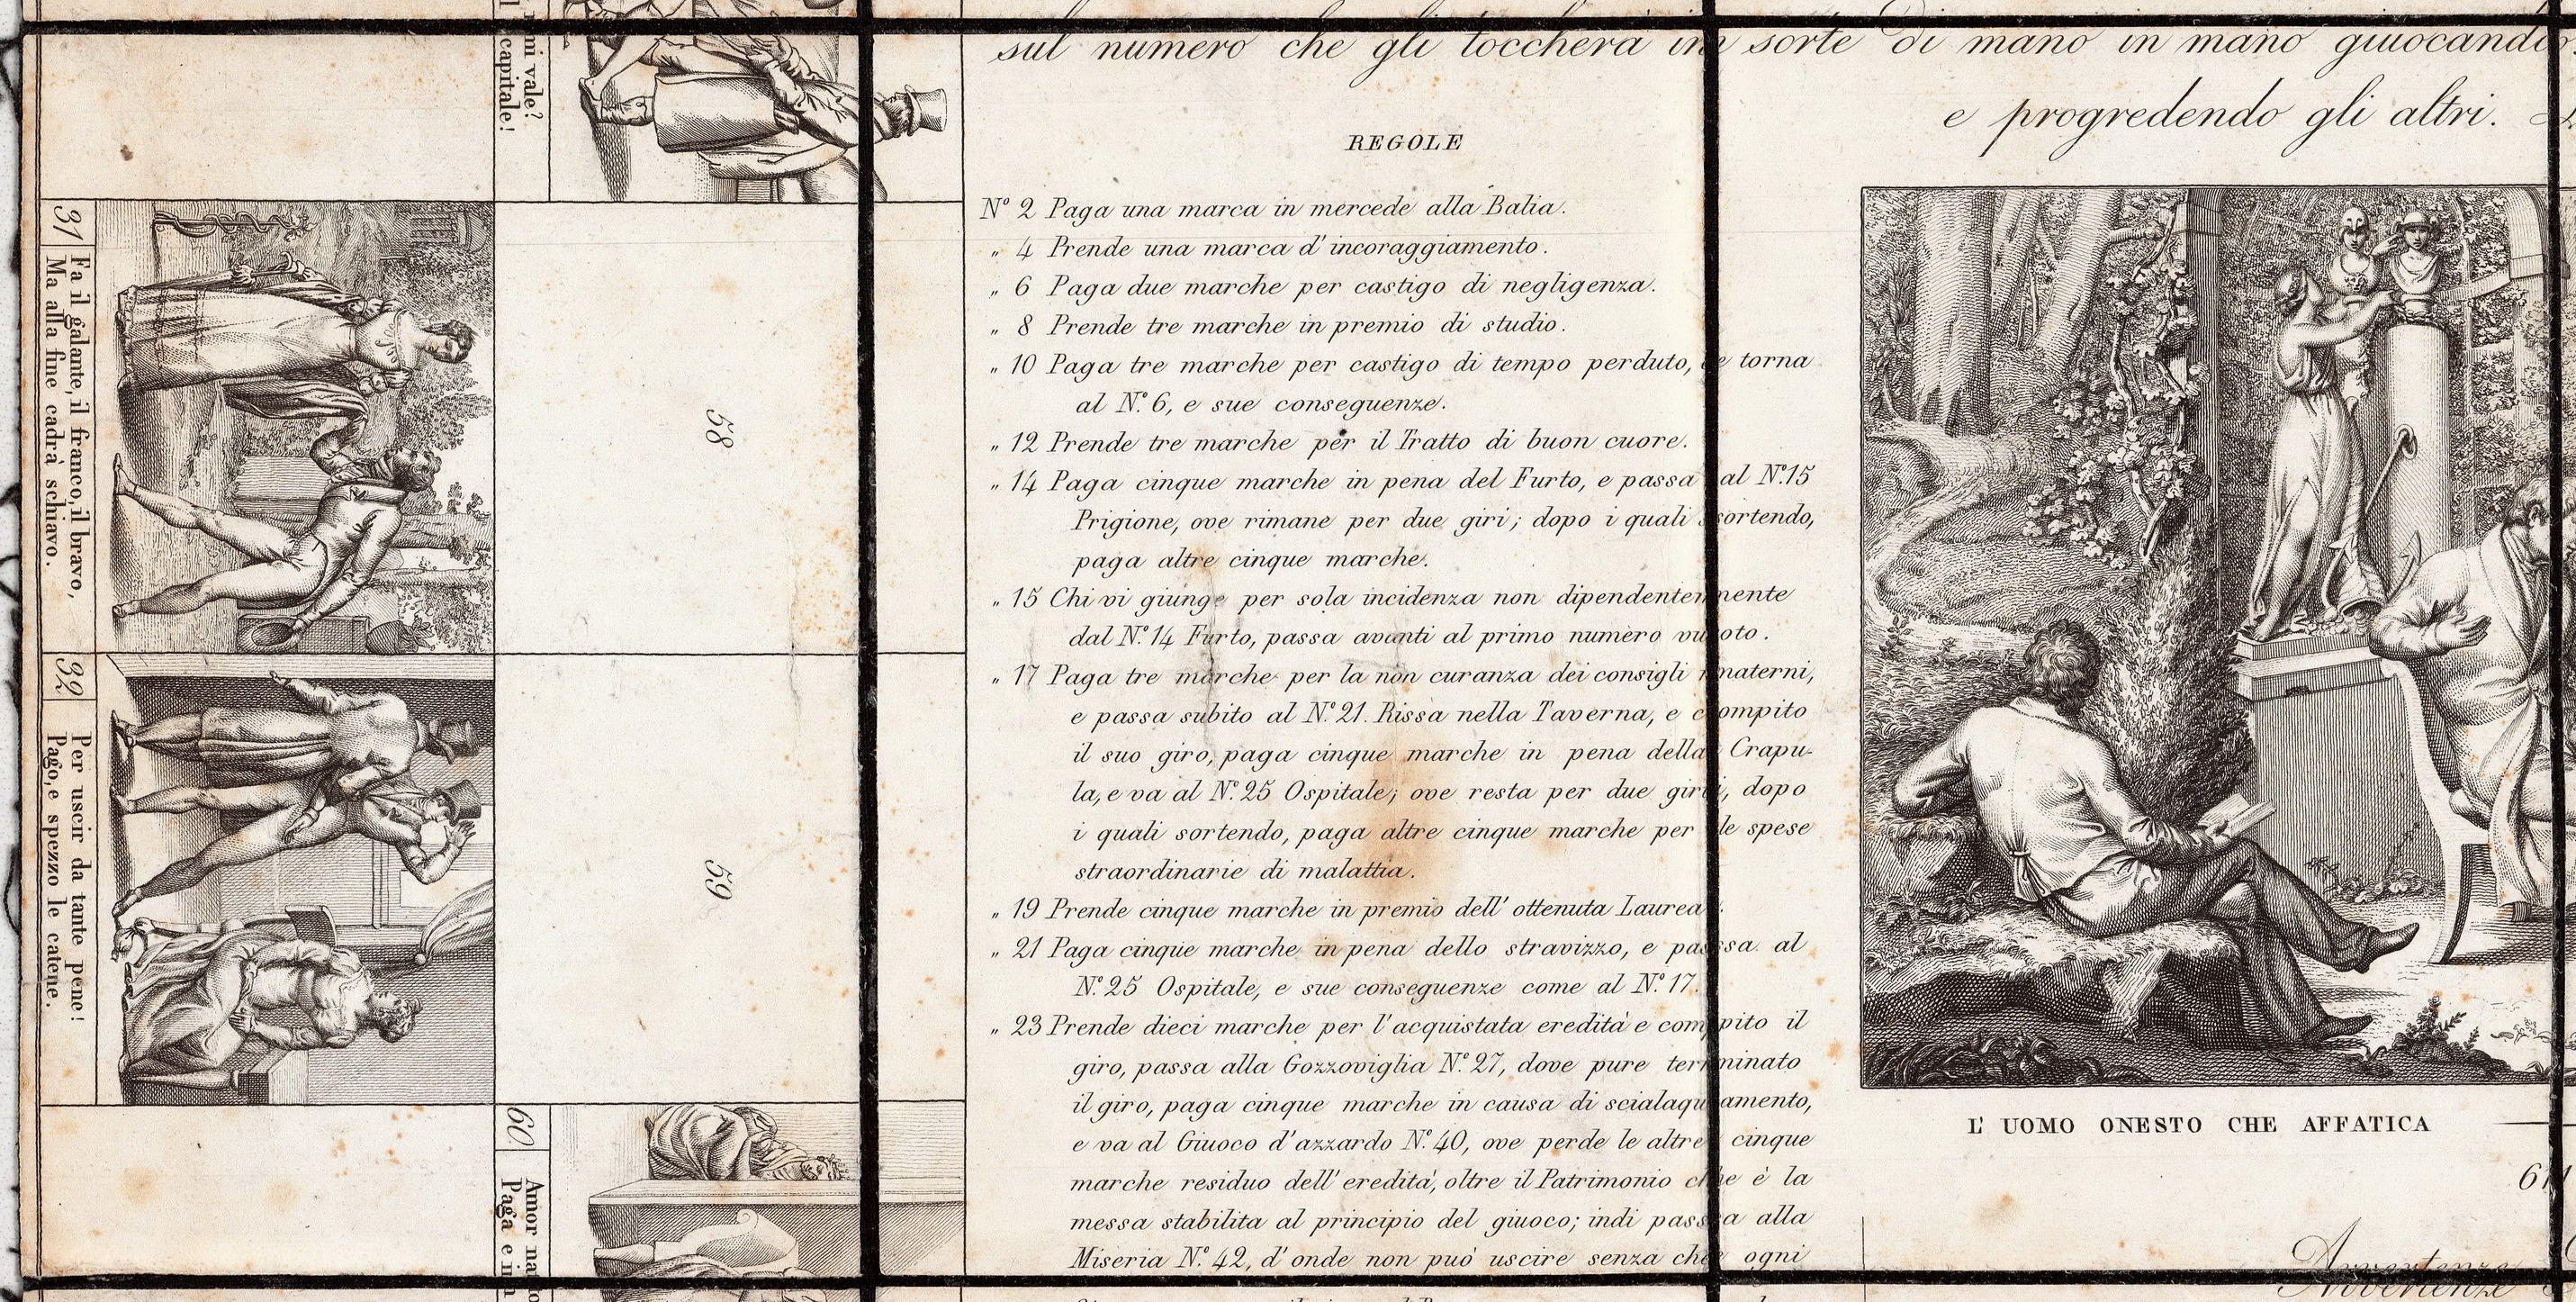 mi vale?
capitale!
31
Fa il galante, il franco, il bravo,
Ma alla fine cadrà schiavo.
32
Per uscir da tante pene!
Pago, e spezzo le catene.
58
59
60
Amor
Paga e
sul numero che gli toccherà in sorte di mano in mano giuocando
e progredendo gli altri.
REGOLE
Nº 2 Paga una marca in mercede alla Balia.
„ 4 Prende una marca d' incoraggiamento.
„ 6 Paga due marche per castigo di negligenza.
„ 8 Prende tre marche in premio di studio.
„ 10 Paga tre marche per castigo di tempo perduto, e torna
al Nº 6, e sue conseguenze.
„ 12 Prende tre marche per il Tratto di buon cuore.
„ 14 Paga cinque marche in pena del Furto, e passa al Nº 15
Prigione, ove rimane per due giri; dopo i quali sortendo,
paga altre cinque marche.
„ 15 Chi vi giunge per sola incidenza non dipendentemente
dal Nº 14 Furto, passa avanti al primo numero vuoto.
„ 17 Paga tre marche per la non curanza dei consigli materni,
e passa subito al Nº 21. Rissa nella Taverna, e compito
il suo giro, paga cinque marche in pena della Crapu-
la, e va al Nº 25 Ospitale; ove resta per due giri, dopo
i quali sortendo, paga altre cinque marche per le spese
straordinarie di malattia.
„ 19 Prende cinque marche in premio dell' ottenuta Laurea.
„ 21 Paga cinque marche in pena dello stravizzo, e passa al
Nº 25 Ospitale, e sue conseguenze come al Nº 17.
„ 23 Prende dieci marche per l'acquistata eredità e compito il
giro, passa alla Gozzoviglia Nº 27, dove pure terminato
il giro, paga cinque marche in causa di scialaquamento,
e va al Giuoco d'azzardo Nº 40, ove perde le altre cinque
marche residuo dell' eredità, oltre il Patrimonio che è la
messa stabilita al principio del giuoco; indi passa alla
Miseria Nº 42, d'onde non può uscire senza che ogni
L' UOMO ONESTO CHE AFFATICA
61
Avvertenze